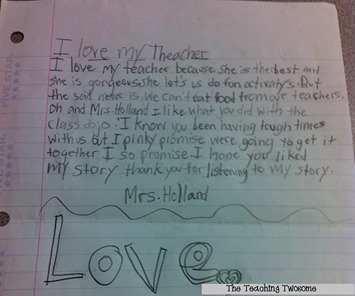 I love my Theacher
I love my teacher because she is the best and
she is gordeous she let's us do fon activitys. But
the sad news is we can't eat food from our teachers.
Oh and Mrs. Holland I like what you did with the
class dojo. I know you been having tough times
with us but I pinky promise were going to get it
together I so promise I hope you liked
My story thank you for listening to my story.
Mrs. Holland
LOVE
The Teaching Twosome